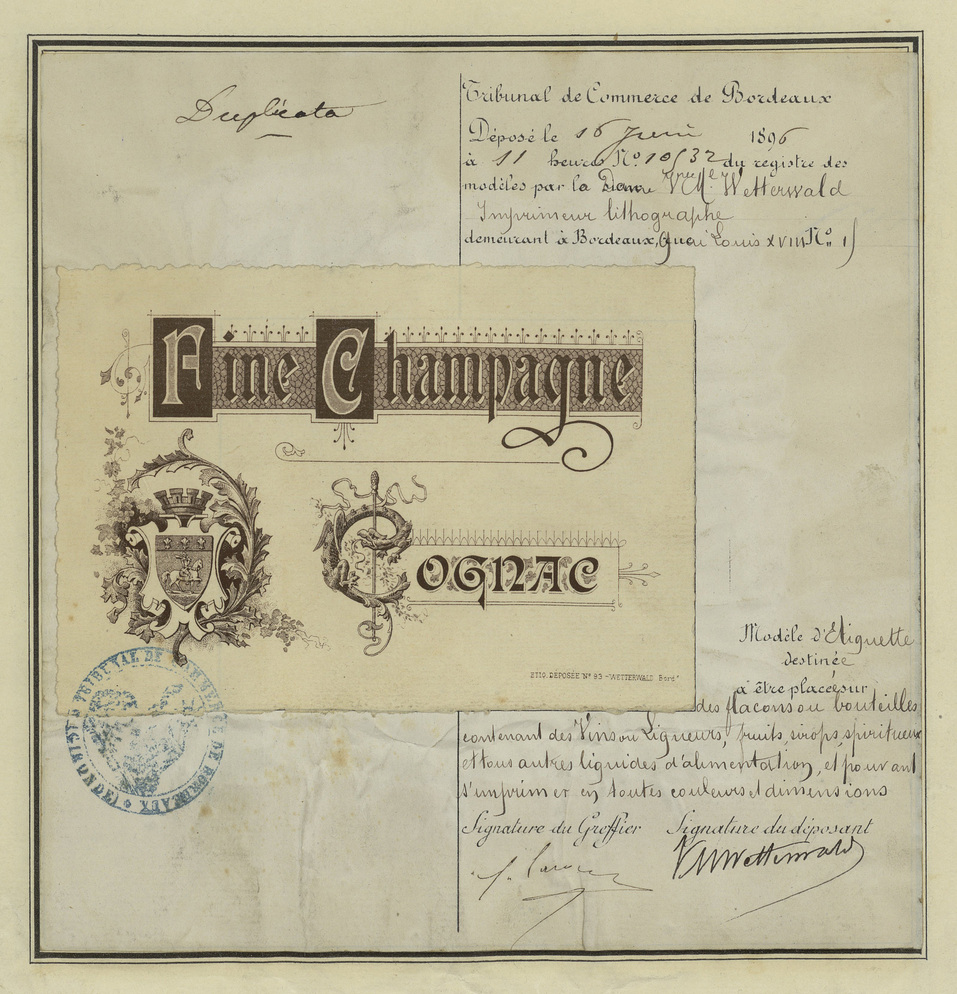 Duplicata
Tribunal de Commerce de Bordeaux
Déposé le 16 Juin 1896
à 11 heures No. 10532 du registre des
modèles par la Dame Vve M. Wetterwald
Imprimeur lithographe
demeurant à Bordeaux, Quai Louis XVIII No.
Fine Champagne
Cognac
2710. DÉPOSÉE No 93 - WETTERWALD Bordx
Modèle d'Etiquette
destinée
à être placée sur
des flacons ou bouteilles
contenant des Vins ou Liqueurs, fruits, sirops, spiritueux
et tous autres liquides d'alimentation, et pouvant
s'imprimer en toutes couleurs et dimensions
Signature du Greffier Signature du déposant
VM Wetterwald
TRIBUNAL DE COMMERCE DE BORDEAUX (GIRONDE)